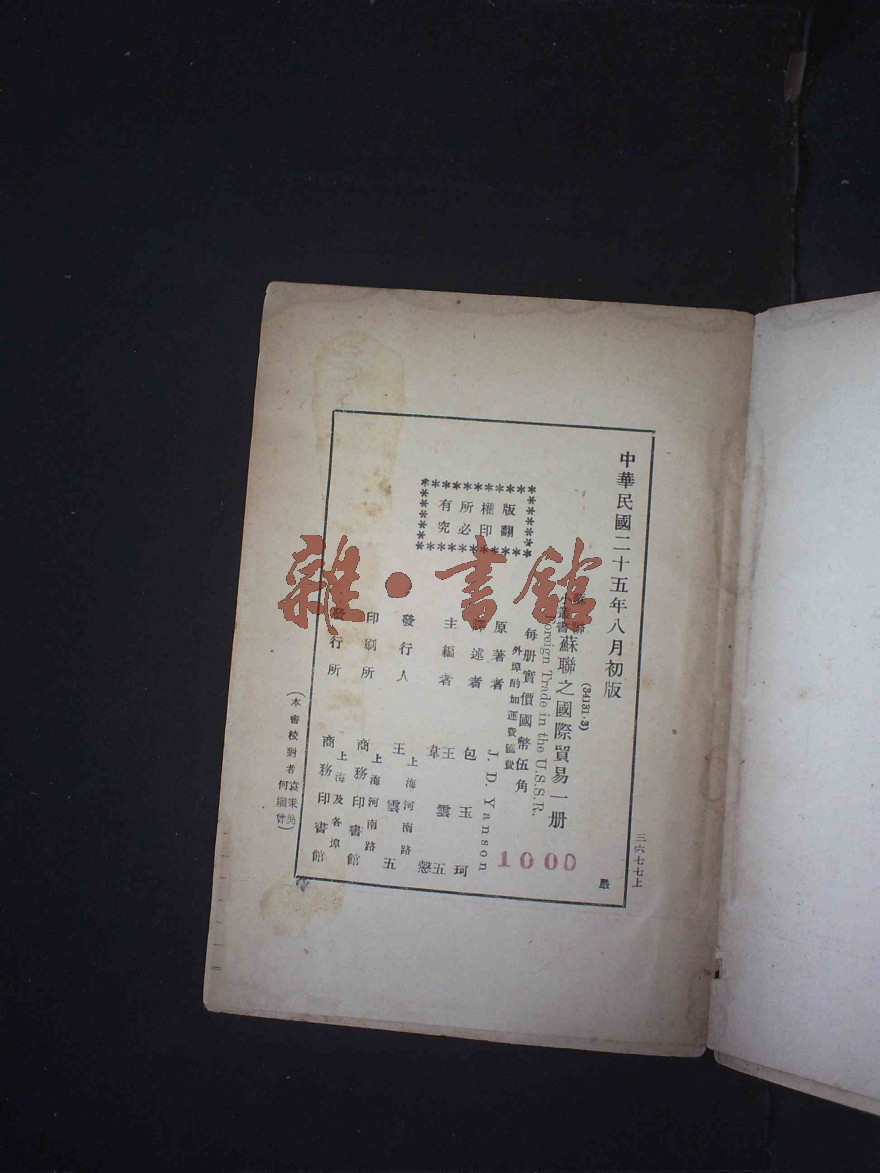 三六七七上
中華民國二十五年八月初版
(34131·3)
蘇聯
小叢書
蘇聯之國際貿易一册
Foreign Trade in the U.S.S.R.
每册實價國幣伍角
外埠酌加運費匯費
1000
嚴
版權所有
翻印必究
原著者 J. D. Yanson
譯述者 包玉珂
主編者 王雲五
韋愨
發行人 王雲五
上海河南路
印刷所 商務印書館
上海河南路
發行所 商務印書館
上海及各埠
(本書校對者 袁秉美
何繼曾)
雜·書館